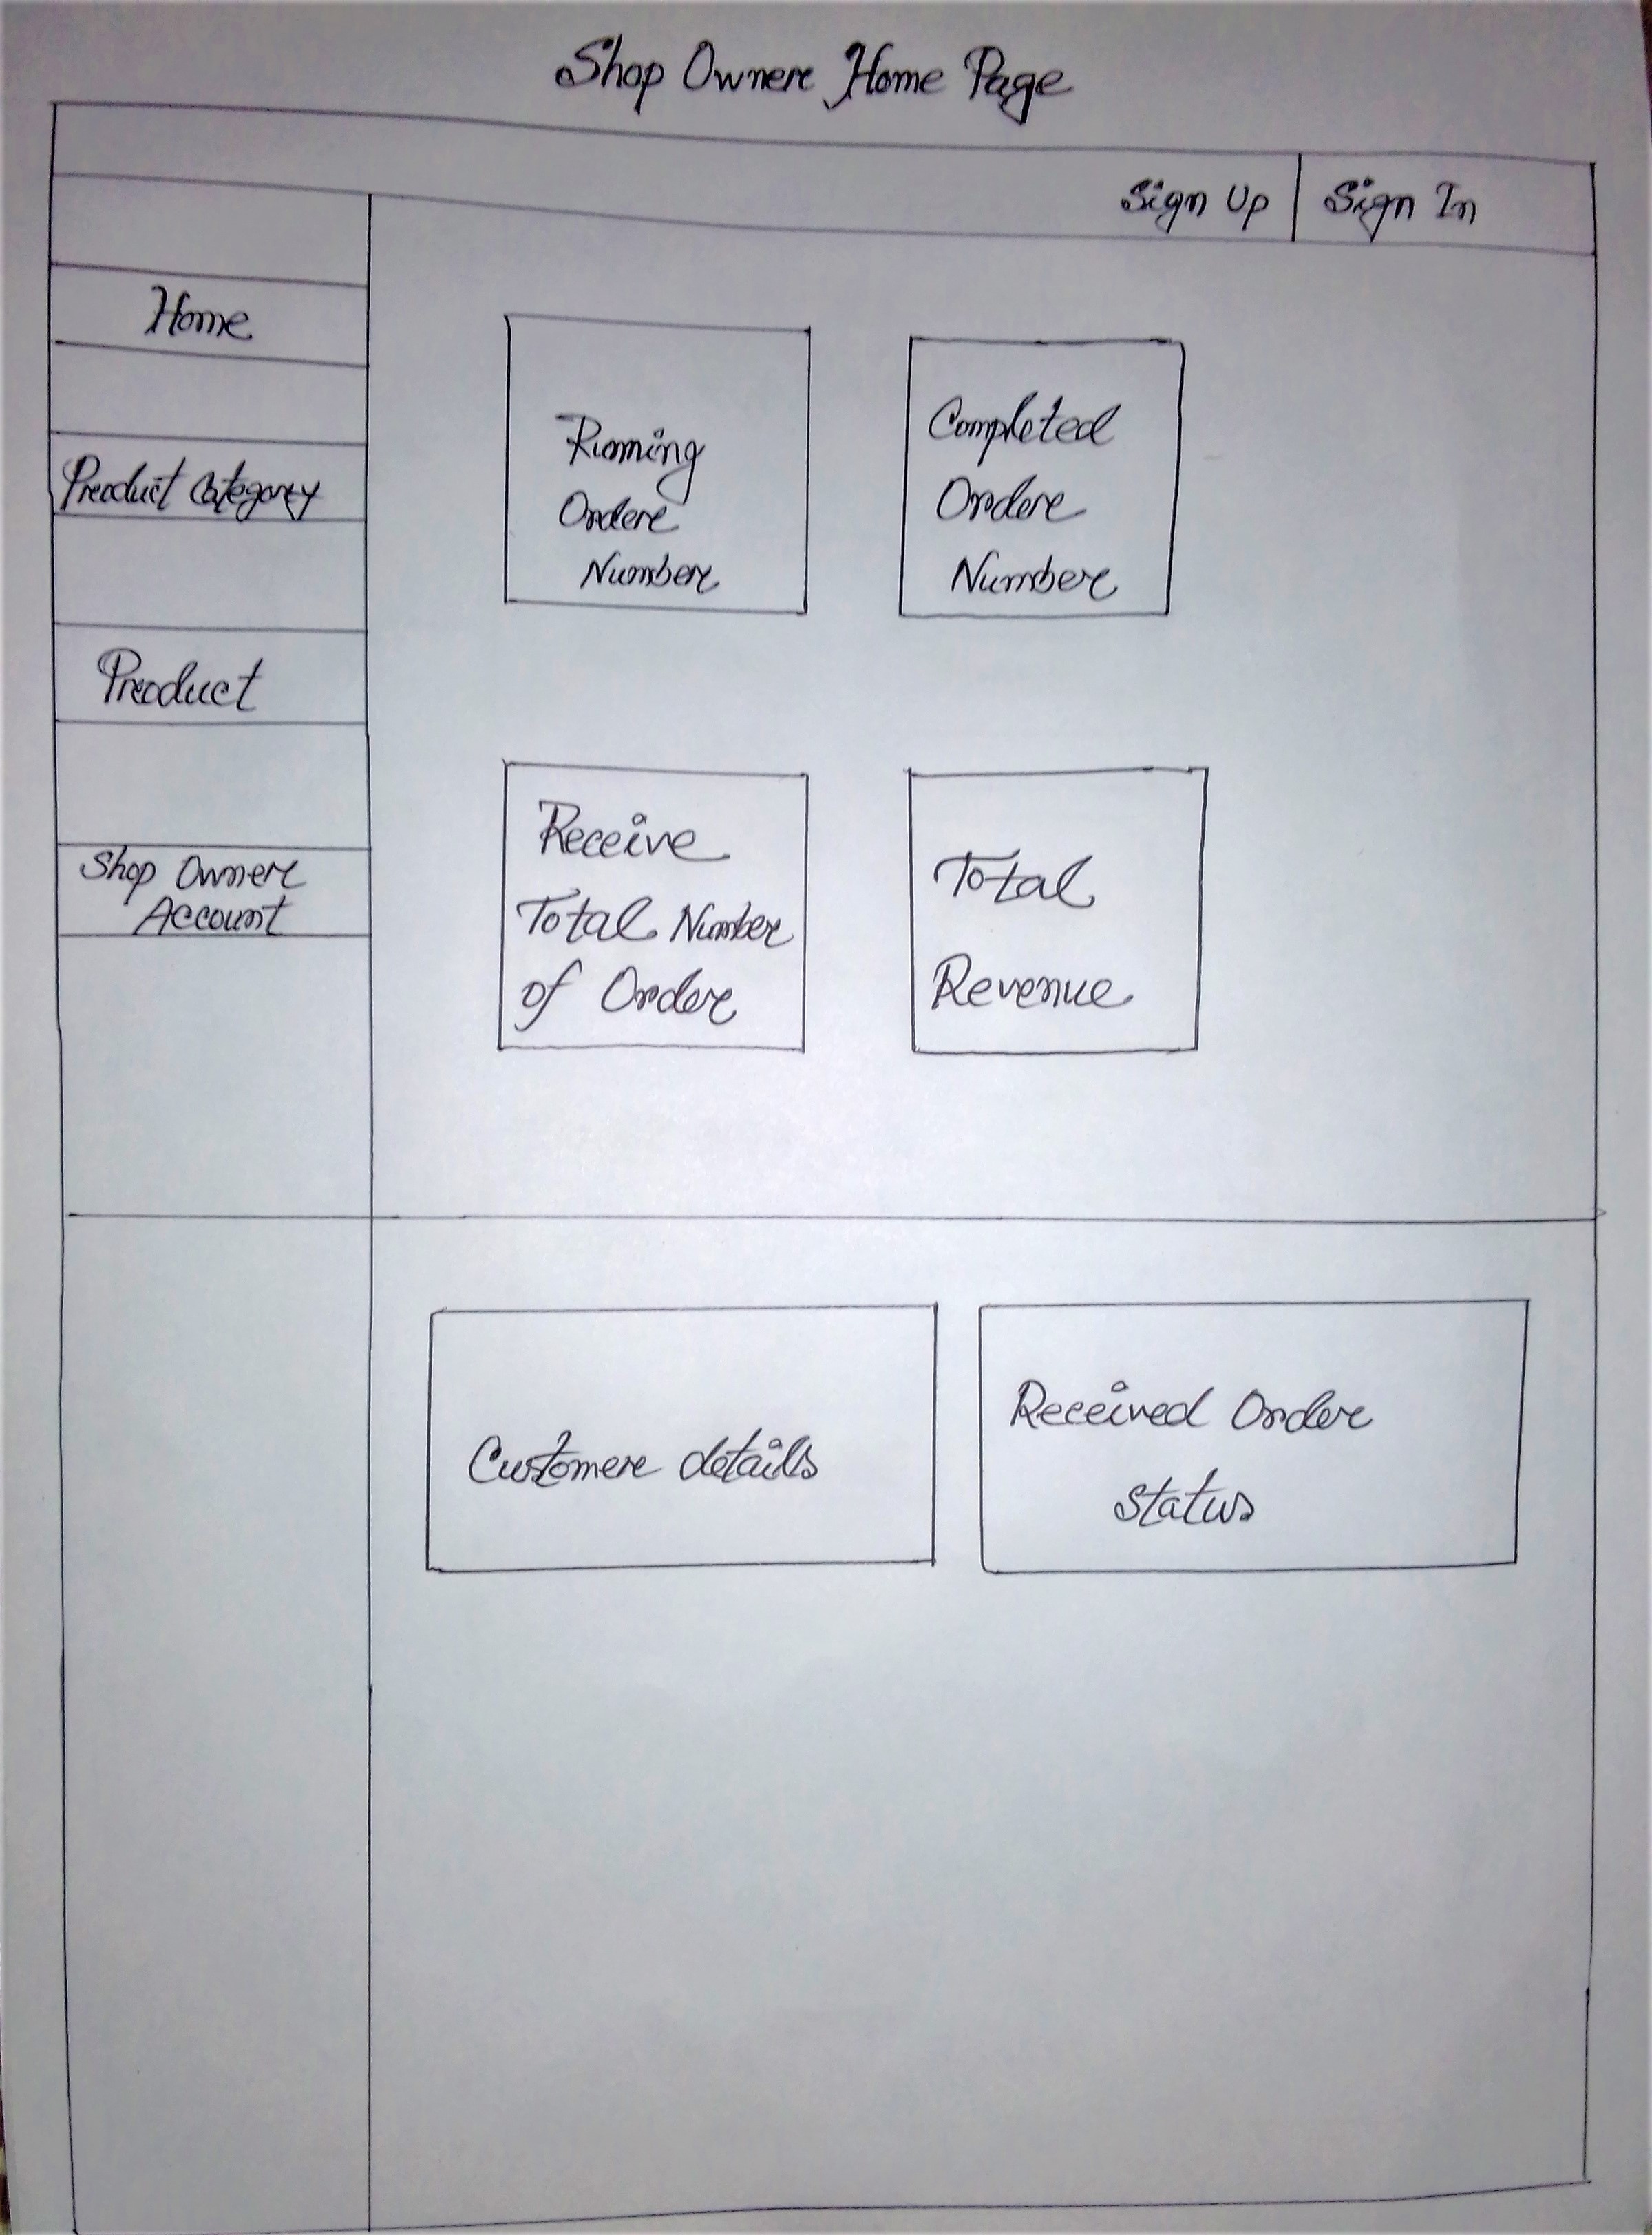 Shop Owner Home Page
Sign Up
Sign In
Home
Product Category
Product
Shop Owner
Account
Running
Order
Number
Completed
Order
Number
Receive
Total Number
of Order
Total
Revenue
Customer details
Received Order
status